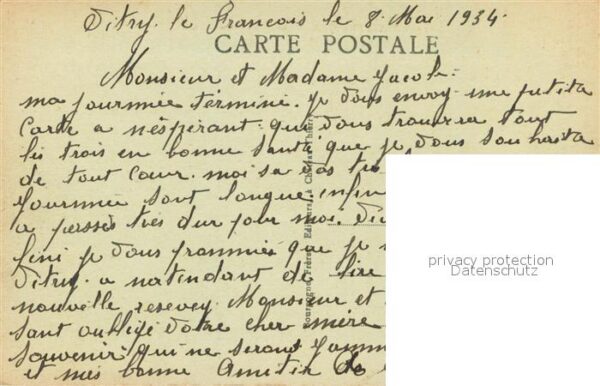 Vitry le Francois le 8 Mai 1934.
CARTE POSTALE
Monsieur et Madame Jacob:
ma journnée términé. je vous envoy une petite
Carte a nésperant. que vous trouvera tout
les trois en bonne santé que je vous souhaita
de tout Cœur. moi sa vas
journnée sont longue enfin
a passés très dur pour moi.
fini je vous prommies que je
Vitry. a natendant de lire
nouvelle resevey Monsieur et
sant oubliée votre cher mère
souvenir qui ne seront
et mes bonne Amitié de
privacy protection
Datenschutz